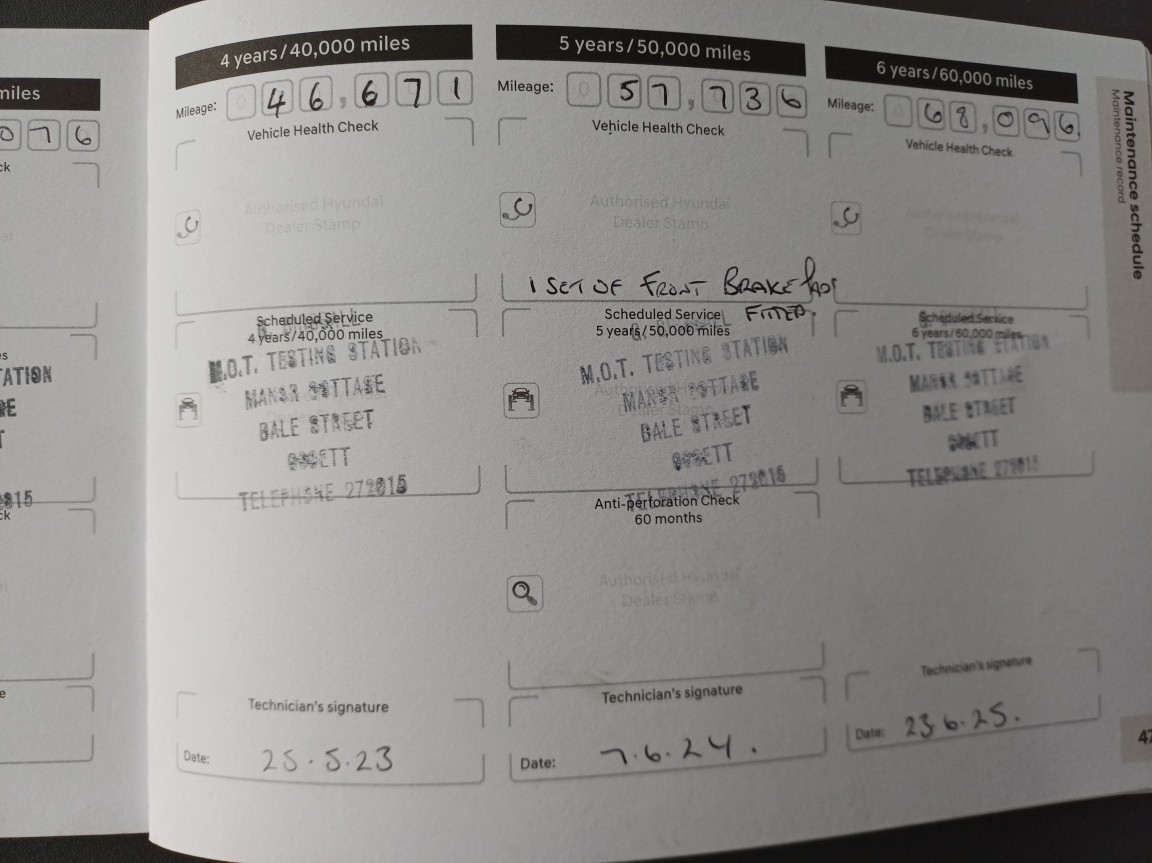 miles
0 7 6
ck
s
ATION
RE
T
2815
ck
e
4 years/40,000 miles
Mileage: 0 4 6, 6 7 1
Vehicle Health Check
Authorised Hyundai
Dealer Stamp
Scheduled Service
4 years/40,000 miles
M.O.T. TESTING STATION
MANOR COTTAGE
DALE STREET
OSSETT
TELEPHONE 272815
Technician's signature
Date: 25.5.23
5 years/50,000 miles
Mileage: 0 5 7, 7 3 6
Vehicle Health Check
Authorised Hyundai
Dealer Stamp
1 SET OF FRONT BRAKE PADS
FITTED.
Scheduled Service
5 years/50,000 miles
M.O.T. TESTING STATION
MANOR COTTAGE
DALE STREET
OSSETT
TELEPHONE 272815
Anti-perforation Check
60 months
Authorised Hyundai
Dealer Stamp
Technician's signature
Date: 7.6.24.
6 years/60,000 miles
Mileage: 0 6 8, 0 9 6
Vehicle Health Check
Authorised Hyundai
Dealer Stamp
Scheduled Service
6 years/60,000 miles
M.O.T. TESTING STATION
MANOR COTTAGE
DALE STREET
OSSETT
TELEPHONE 272815
Technician's signature
Date: 23.6.25.
Maintenance schedule
Maintenance record
47